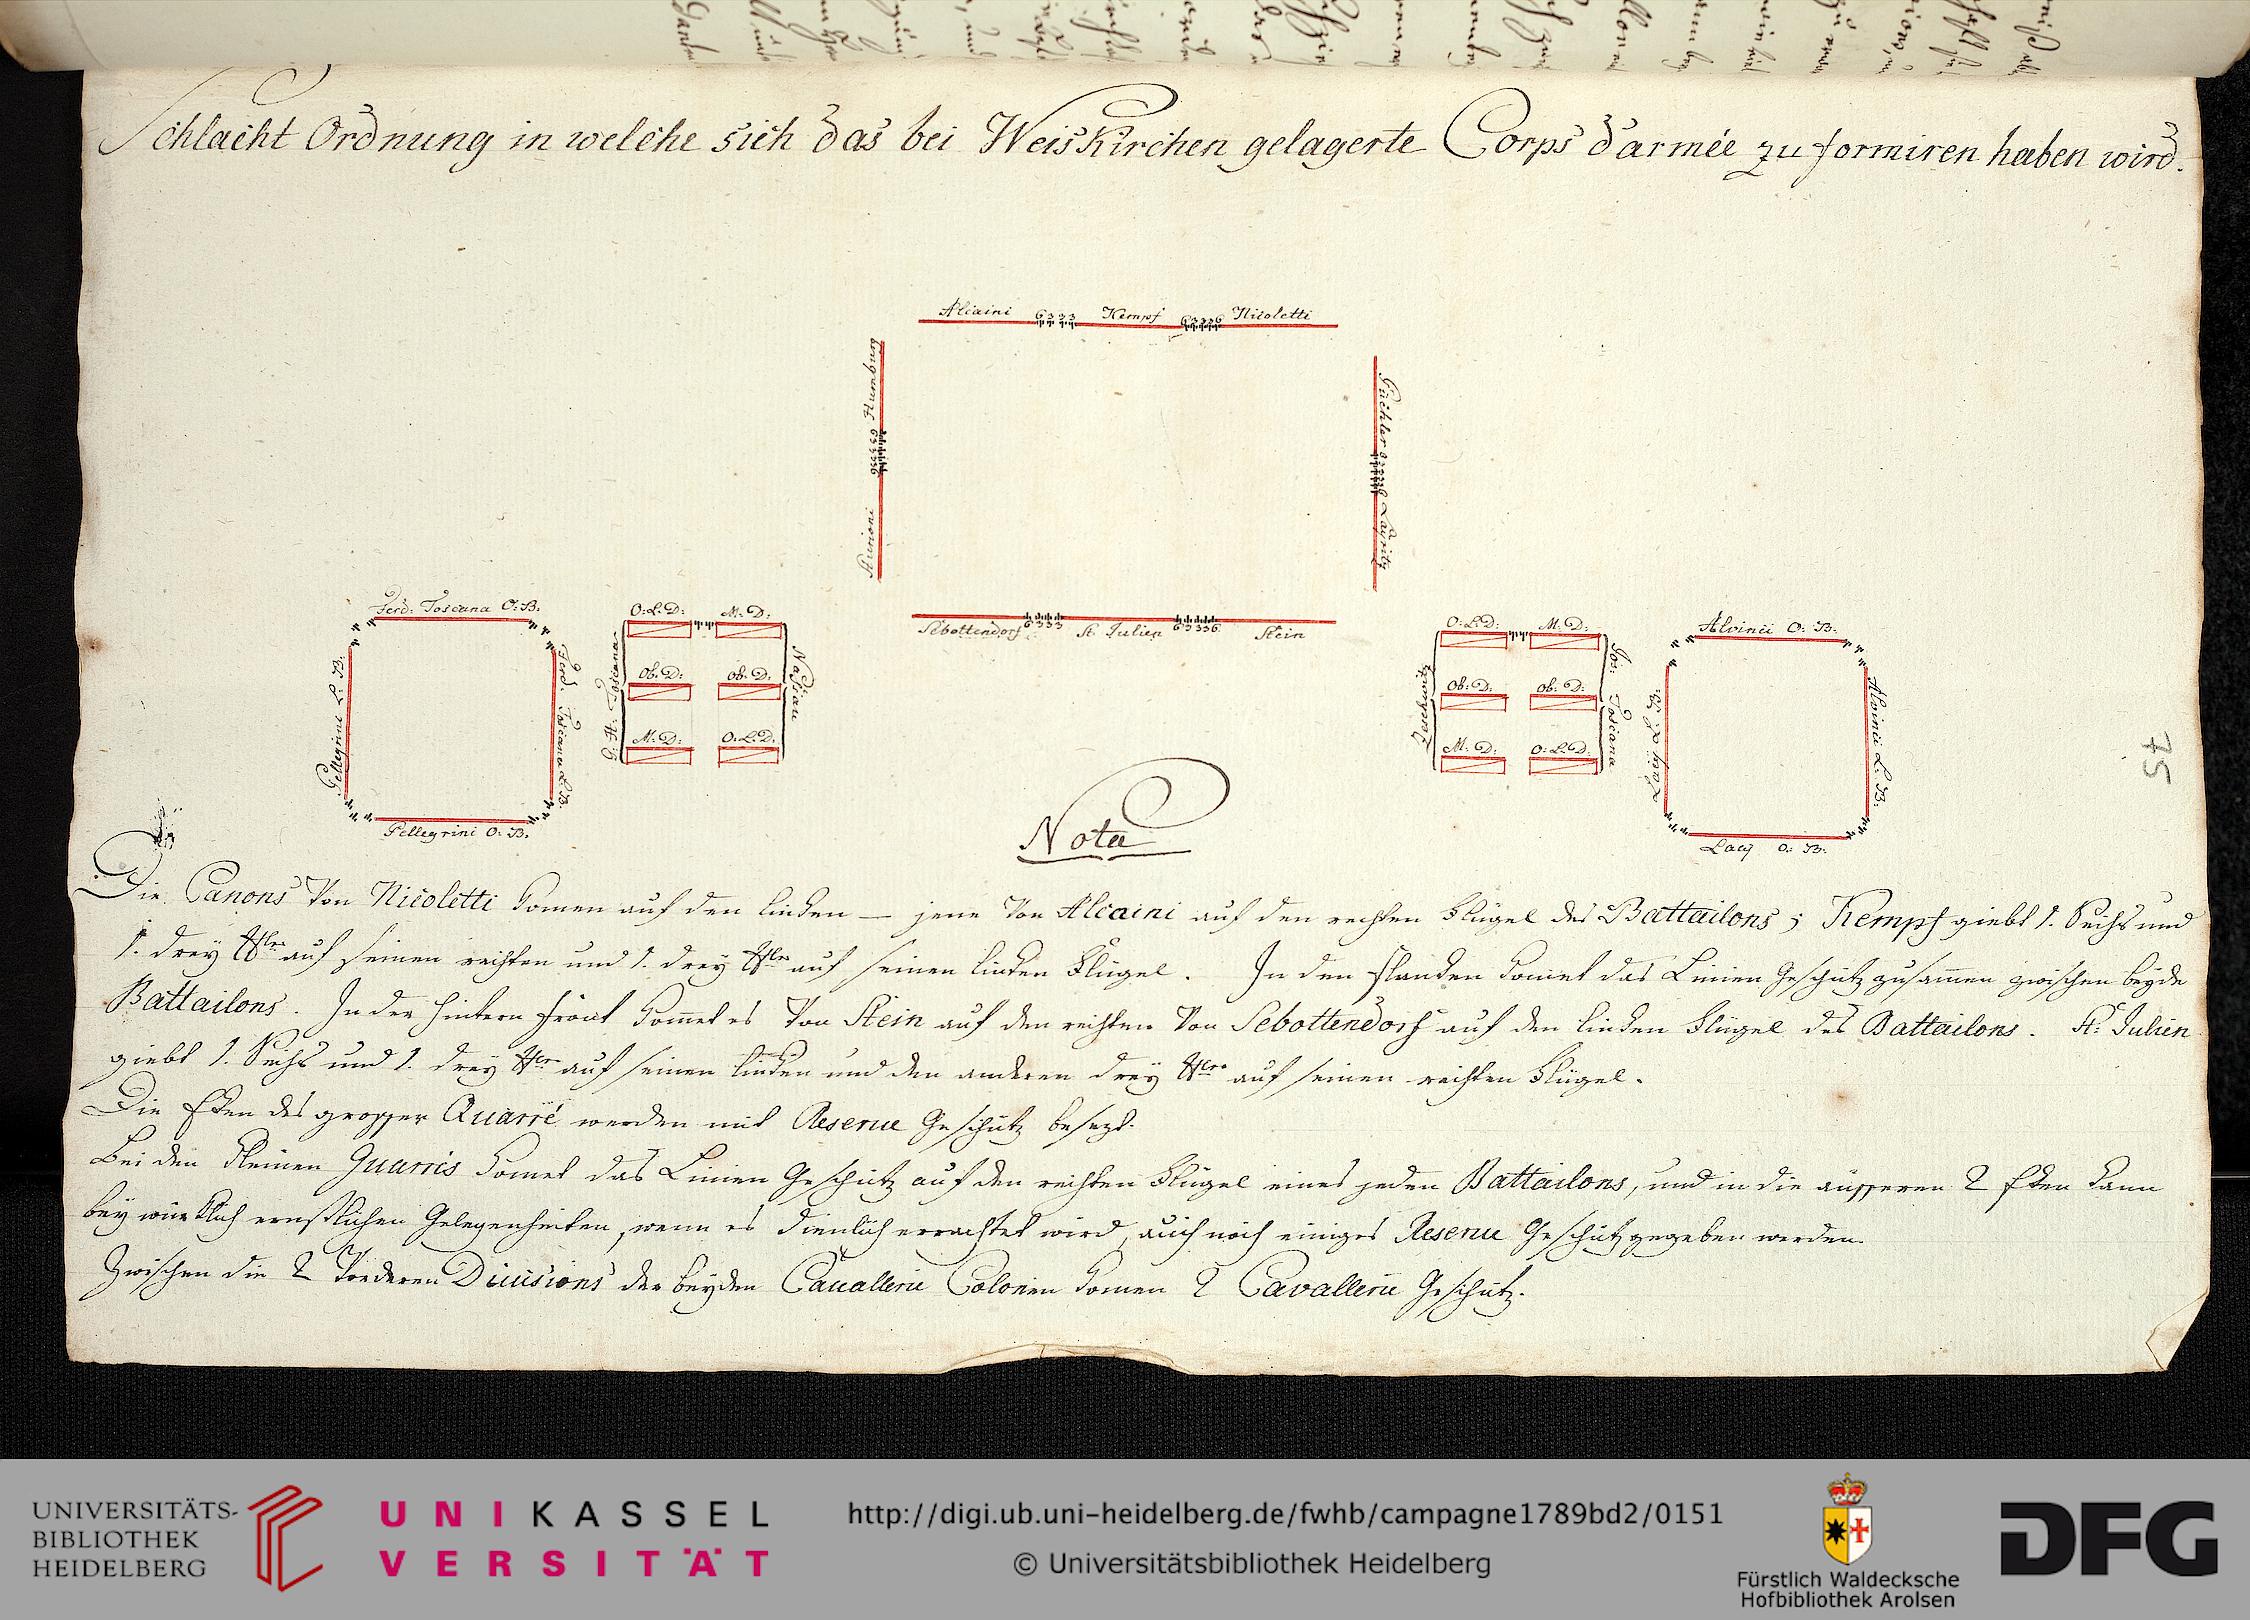 Schlacht Ordnung in welche sich das bei Weiskirchen gelagerte Corps d'armée zu formiren haben wird.
Alcaini 6333 Kempf 63336 Nicoletti
Humburg
63336
Püchler
63336
Lauritz
Sebottendorf 6333 St. Julien 63336 Stein
Ferd: Toscana O: B:
Pellegrini L: B:
Ferd: Toscana L: B:
Pellegrini O: B:
O: L: D: M: D:
Ob: D: Ob: D:
M: D: O: L: D:
G: H: Toscana
Nassau
O: L: D: M: D:
Ob: D: Ob: D:
M: D: O: L: D:
Jos: Toscana
Alvinci O: B:
Lacÿ L: B:
Alvinci L: B:
Lacÿ O: B:
75
Nota
Die Canons von Nicoletti komen auf den linken — jene von Alcaini auf den rechten Flügel des Battailons; Kempf giebt 1. Sechs und
1. dreÿ ℔der auf seinen rechten und 1. dreÿ ℔der auf seinen linken Flügel. In den Flanken komet das Linien Geschütz zusamen zwischen beyde
Battailons. In der hintern Front komet es von Stein auf den rechten von Sebottendorf auf den linken Flügel des Battailons. St: Julien
giebt 1. Sechs und 1. dreÿ ℔der auf seinen linken und den anderen dreÿ ℔der auf seinen rechten Flügel.
Die Eken des grosser Quarré werden mit Reserve Geschütz besezt.
Bei den kleinen Quarrés komet das Linien Geschütz auf den rechten Flügel eines jeden Battailons, und in die äusseren 2 Eken kann
bey würklich ernstlichen Gelegenheiten, wenn es dienlich errachtet wird, auch noch einiges Reserve Geschütz gegeben werden.
Zwischen die 2 vorderen Divisions der beyden Cavallerie Colonen komen 2 Cavallerie Geschütz.
UNIVERSITÄTS-
BIBLIOTHEK
HEIDELBERG
UNIKASSEL
VERSITÄT
http://digi.ub.uni-heidelberg.de/fwhb/campagne1789bd2/0151
© Universitätsbibliothek Heidelberg
Fürstlich Waldecksche
Hofbibliothek Arolsen
DFG